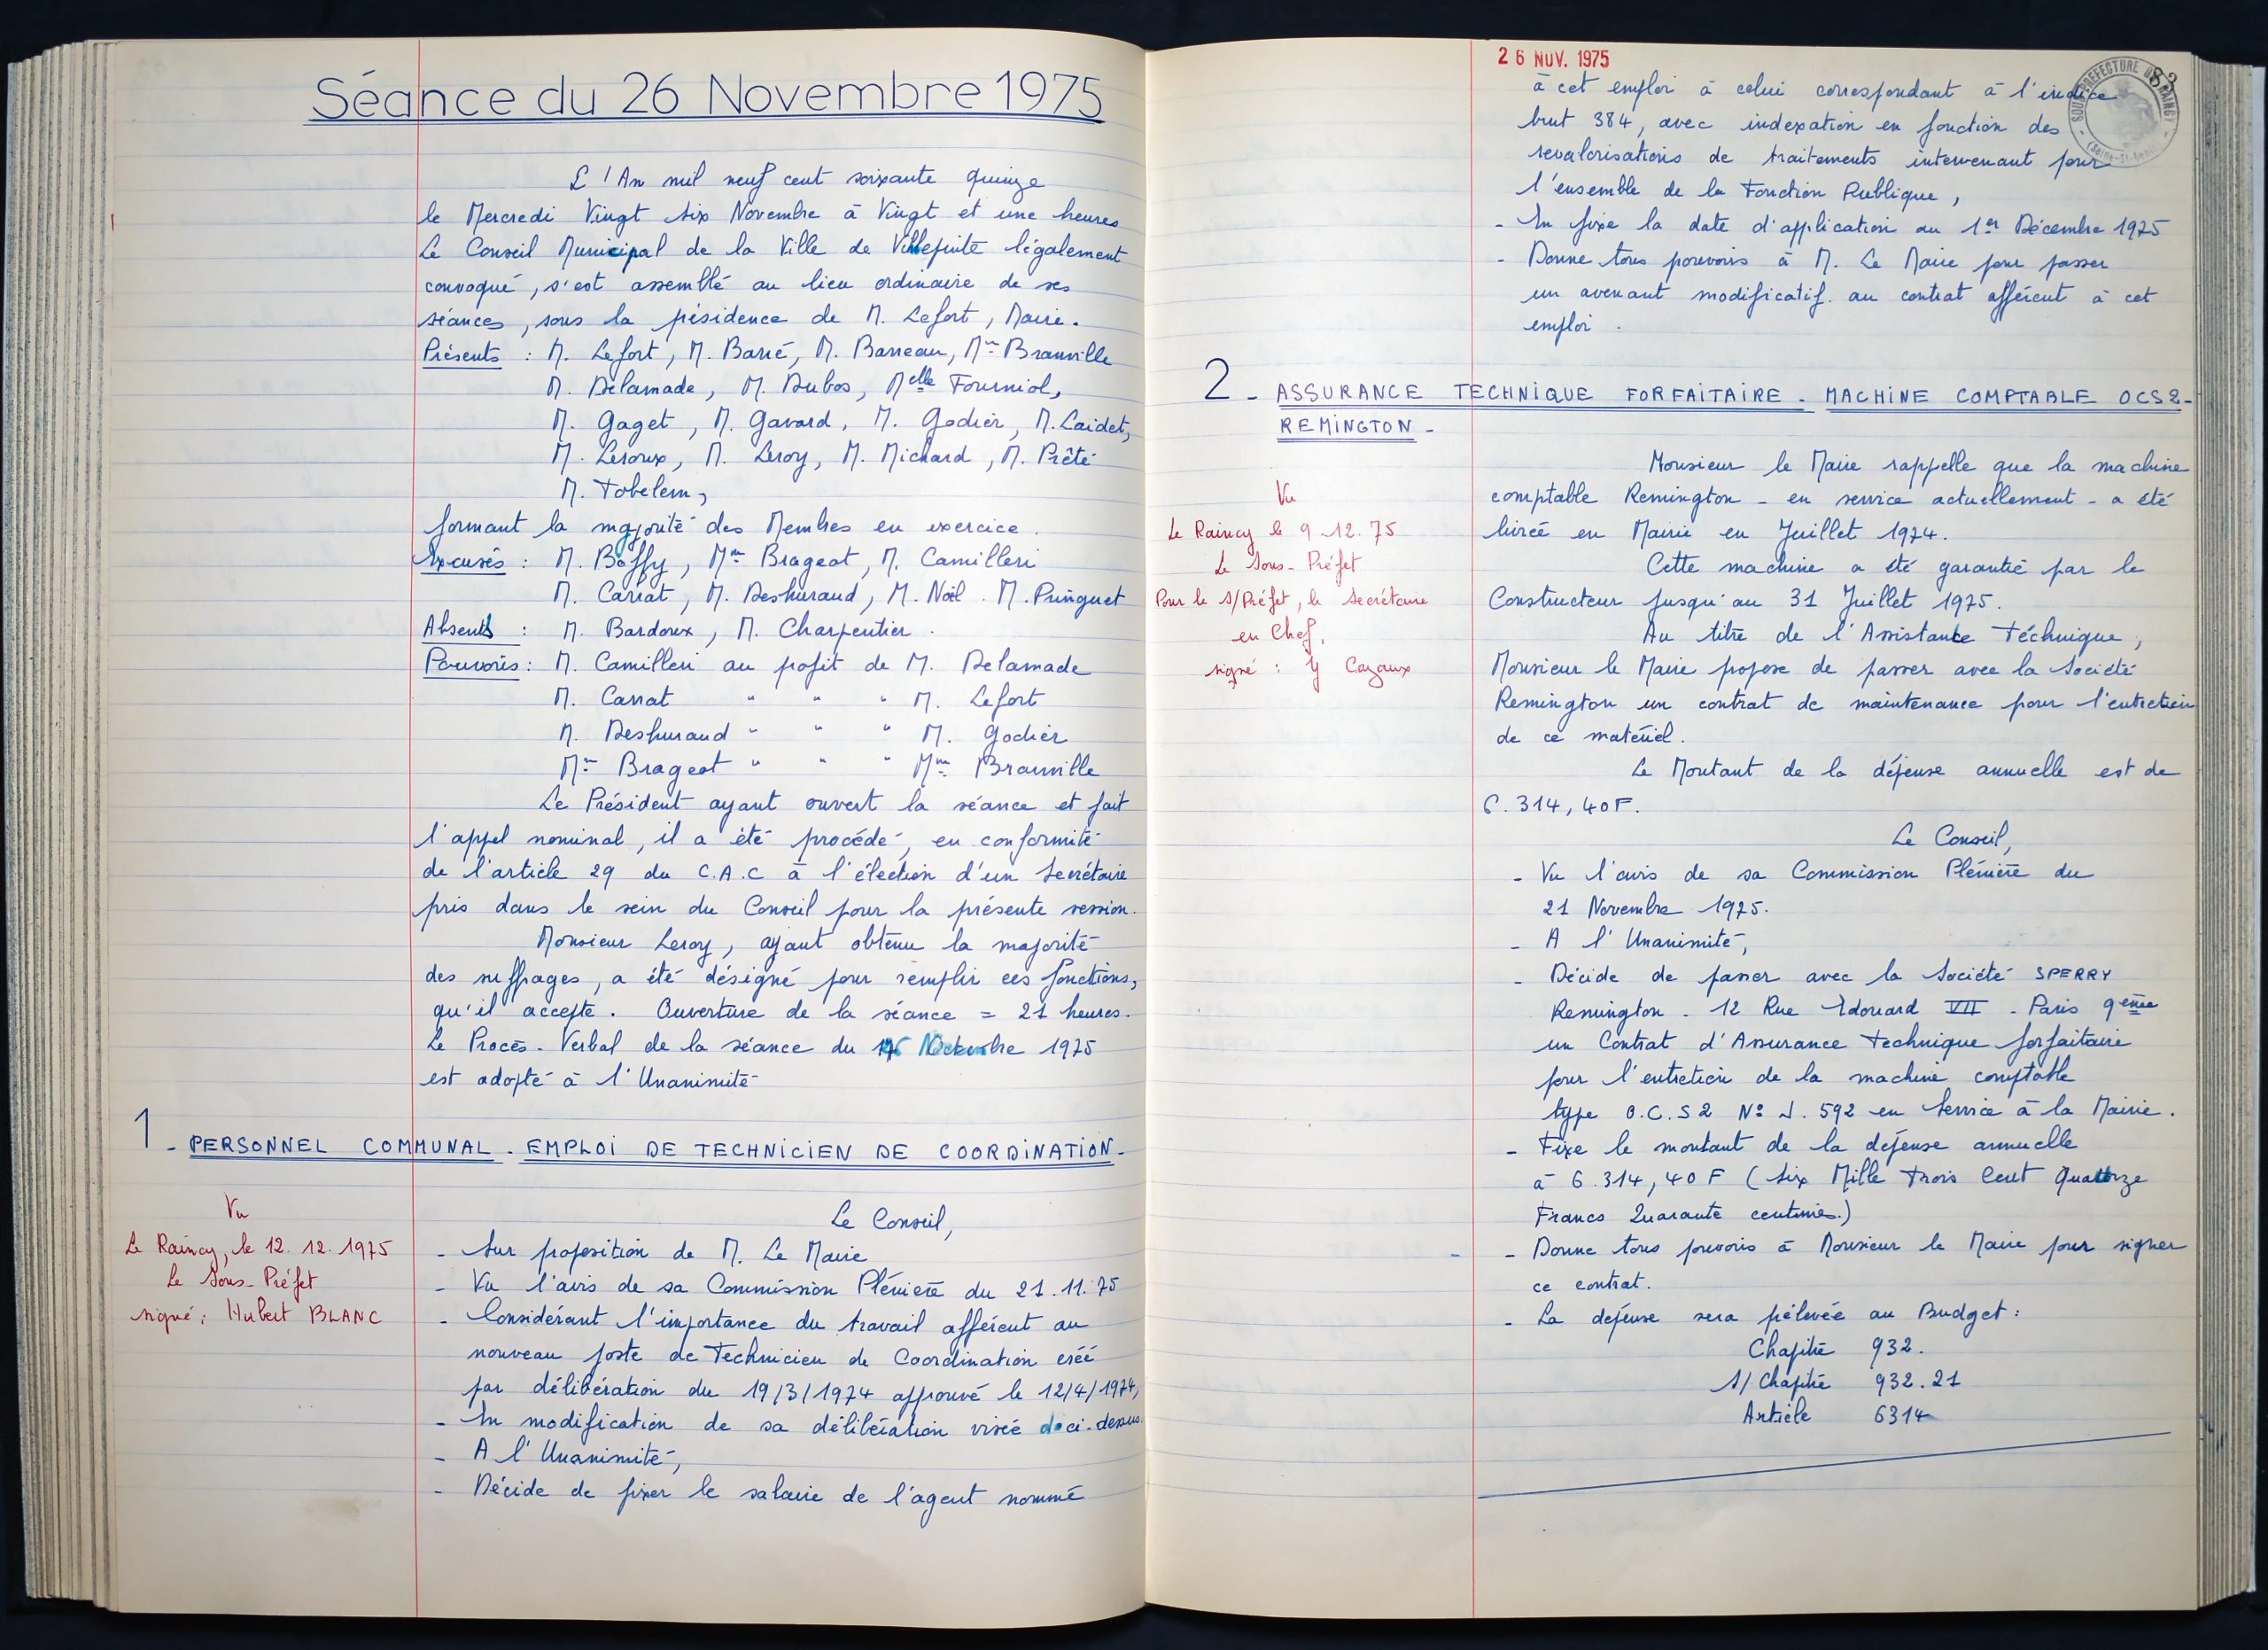 Séance du 26 Novembre 1975
L'An mil neuf cent soixante quinze
le Mercredi Vingt six Novembre à Vingt et une heures
Le Conseil Municipal de la Ville de Villepinte légalement
convoqué, s'est assemblé au lieu ordinaire de ses
séances, sous la présidence de M. Lefort, Maire.
Présents : M. Lefort, M. Barré, M. Barreau, Mme Branville
M. Delamade, M. Dubos, Melle Fourniol,
M. Gaget, M. Gavard, M. Godier, M. Laidet,
M. Leroux, M. Leroy, M. Michard, M. Prêté
M. Tobelem,
formant la majorité des Membres en exercice.
Excusés : M. Boffy, Mme Brageot, M. Camilleri
M. Carrat, M. Deshuraud, M. Noël. M. Puinguet
Absents : M. Bardoux, M. Charpentier.
Pouvoirs : M. Camilleri au profit de M. Delamade
M. Carrat " " " M. Lefort
M. Deshuraud " " " M. Godier
Mme Brageot " " " Mme Branville
Le Président ayant ouvert la séance et fait
l'appel nominal, il a été procédé, en conformité
de l'article 29 du C.A.C à l'élection d'un Secrétaire
pris dans le sein du Conseil pour la présente session.
Monsieur Leroy, ayant obtenu la majorité
des suffrages, a été désigné pour remplir ces fonctions,
qu'il accepte. Ouverture de la séance = 21 heures.
Le Procès-Verbal de la séance du 1975
est adopté à l'Unanimité
1 - PERSONNEL COMMUNAL. EMPLOI DE TECHNICIEN DE COORDINATION-
Vu
Le Raincy, le 12.12.1975
Le Sous-Préfet
signé : Hubert BLANC
Le Conseil,
- Sur proposition de M. Le Maire
- Vu l'avis de sa Commission Plénière du 21.11.75
- Considérant l'importance du travail afférent au
nouveau poste de Technicien de Coordination créé
par délibération du 19/3/1974 approuvé le 12/4/1974,
- En modification de sa délibération visée ci-dessus
- A l'Unanimité,
- Décide de fixer le salaire de l'agent nommé
26 NOV. 1975
83
SOUS-PREFECTURE DU RAINCY
(Seine-St-Denis)
à cet emploi à celui correspondant à l'indice
brut 384, avec indexation en fonction des
revalorisations de traitements intervenant pour
l'ensemble de la Fonction Publique,
- En fixe la date d'application au 1er Décembre 1975
- Donne tous pouvoirs à M. Le Maire pour passer
un avenant modificatif. au contrat afférent à cet
emploi.
2 - ASSURANCE TECHNIQUE FORFAITAIRE - MACHINE COMPTABLE OCS2-
REMINGTON -
Vu
Le Raincy le 9-12.75
Le Sous-Préfet
Pour le S/Préfet, le Secrétaire
en Chef,
signé : Y Cazaux
Monsieur le Maire rappelle que la machine
comptable Remington - en service actuellement - a été
livrée en Mairie en Juillet 1974.
Cette machine a été garantie par le
Constructeur jusqu'au 31 Juillet 1975.
Au titre de l'Assistance Téchnique,
Monsieur le Maire propose de passer avec la Société
Remington un contrat de maintenance pour l'entretien
de ce matériel.
Le Montant de la dépense annuelle est de
6.314,40F.
Le Conseil,
- Vu l'avis de sa Commission Plénière du
21 Novembre 1975.
- A l'Unanimité,
- Décide de passer avec la Société SPERRY
Remington - 12 Rue Edouard VII - Paris 9ème
un Contrat d'Assurance Technique forfaitaire
pour l'entretien de la machine comptable
type O.C.S2 N° J.592 en Service à la Mairie.
- Fixe le montant de la dépense annuelle
à 6.314,40 F (Six Mille Trois Cent Quatorze
Francs Quarante centimes.)
- Donne tous pouvoirs à Monsieur le Maire pour signer
ce contrat.
- La dépense sera prélevée au Budget :
Chapitre 932.
S/Chapitre 932.21
Article 6314